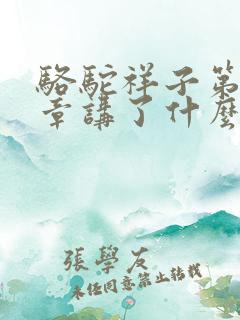 駱駝祥子第
章講了什麼
張學友
未经同意禁止转载